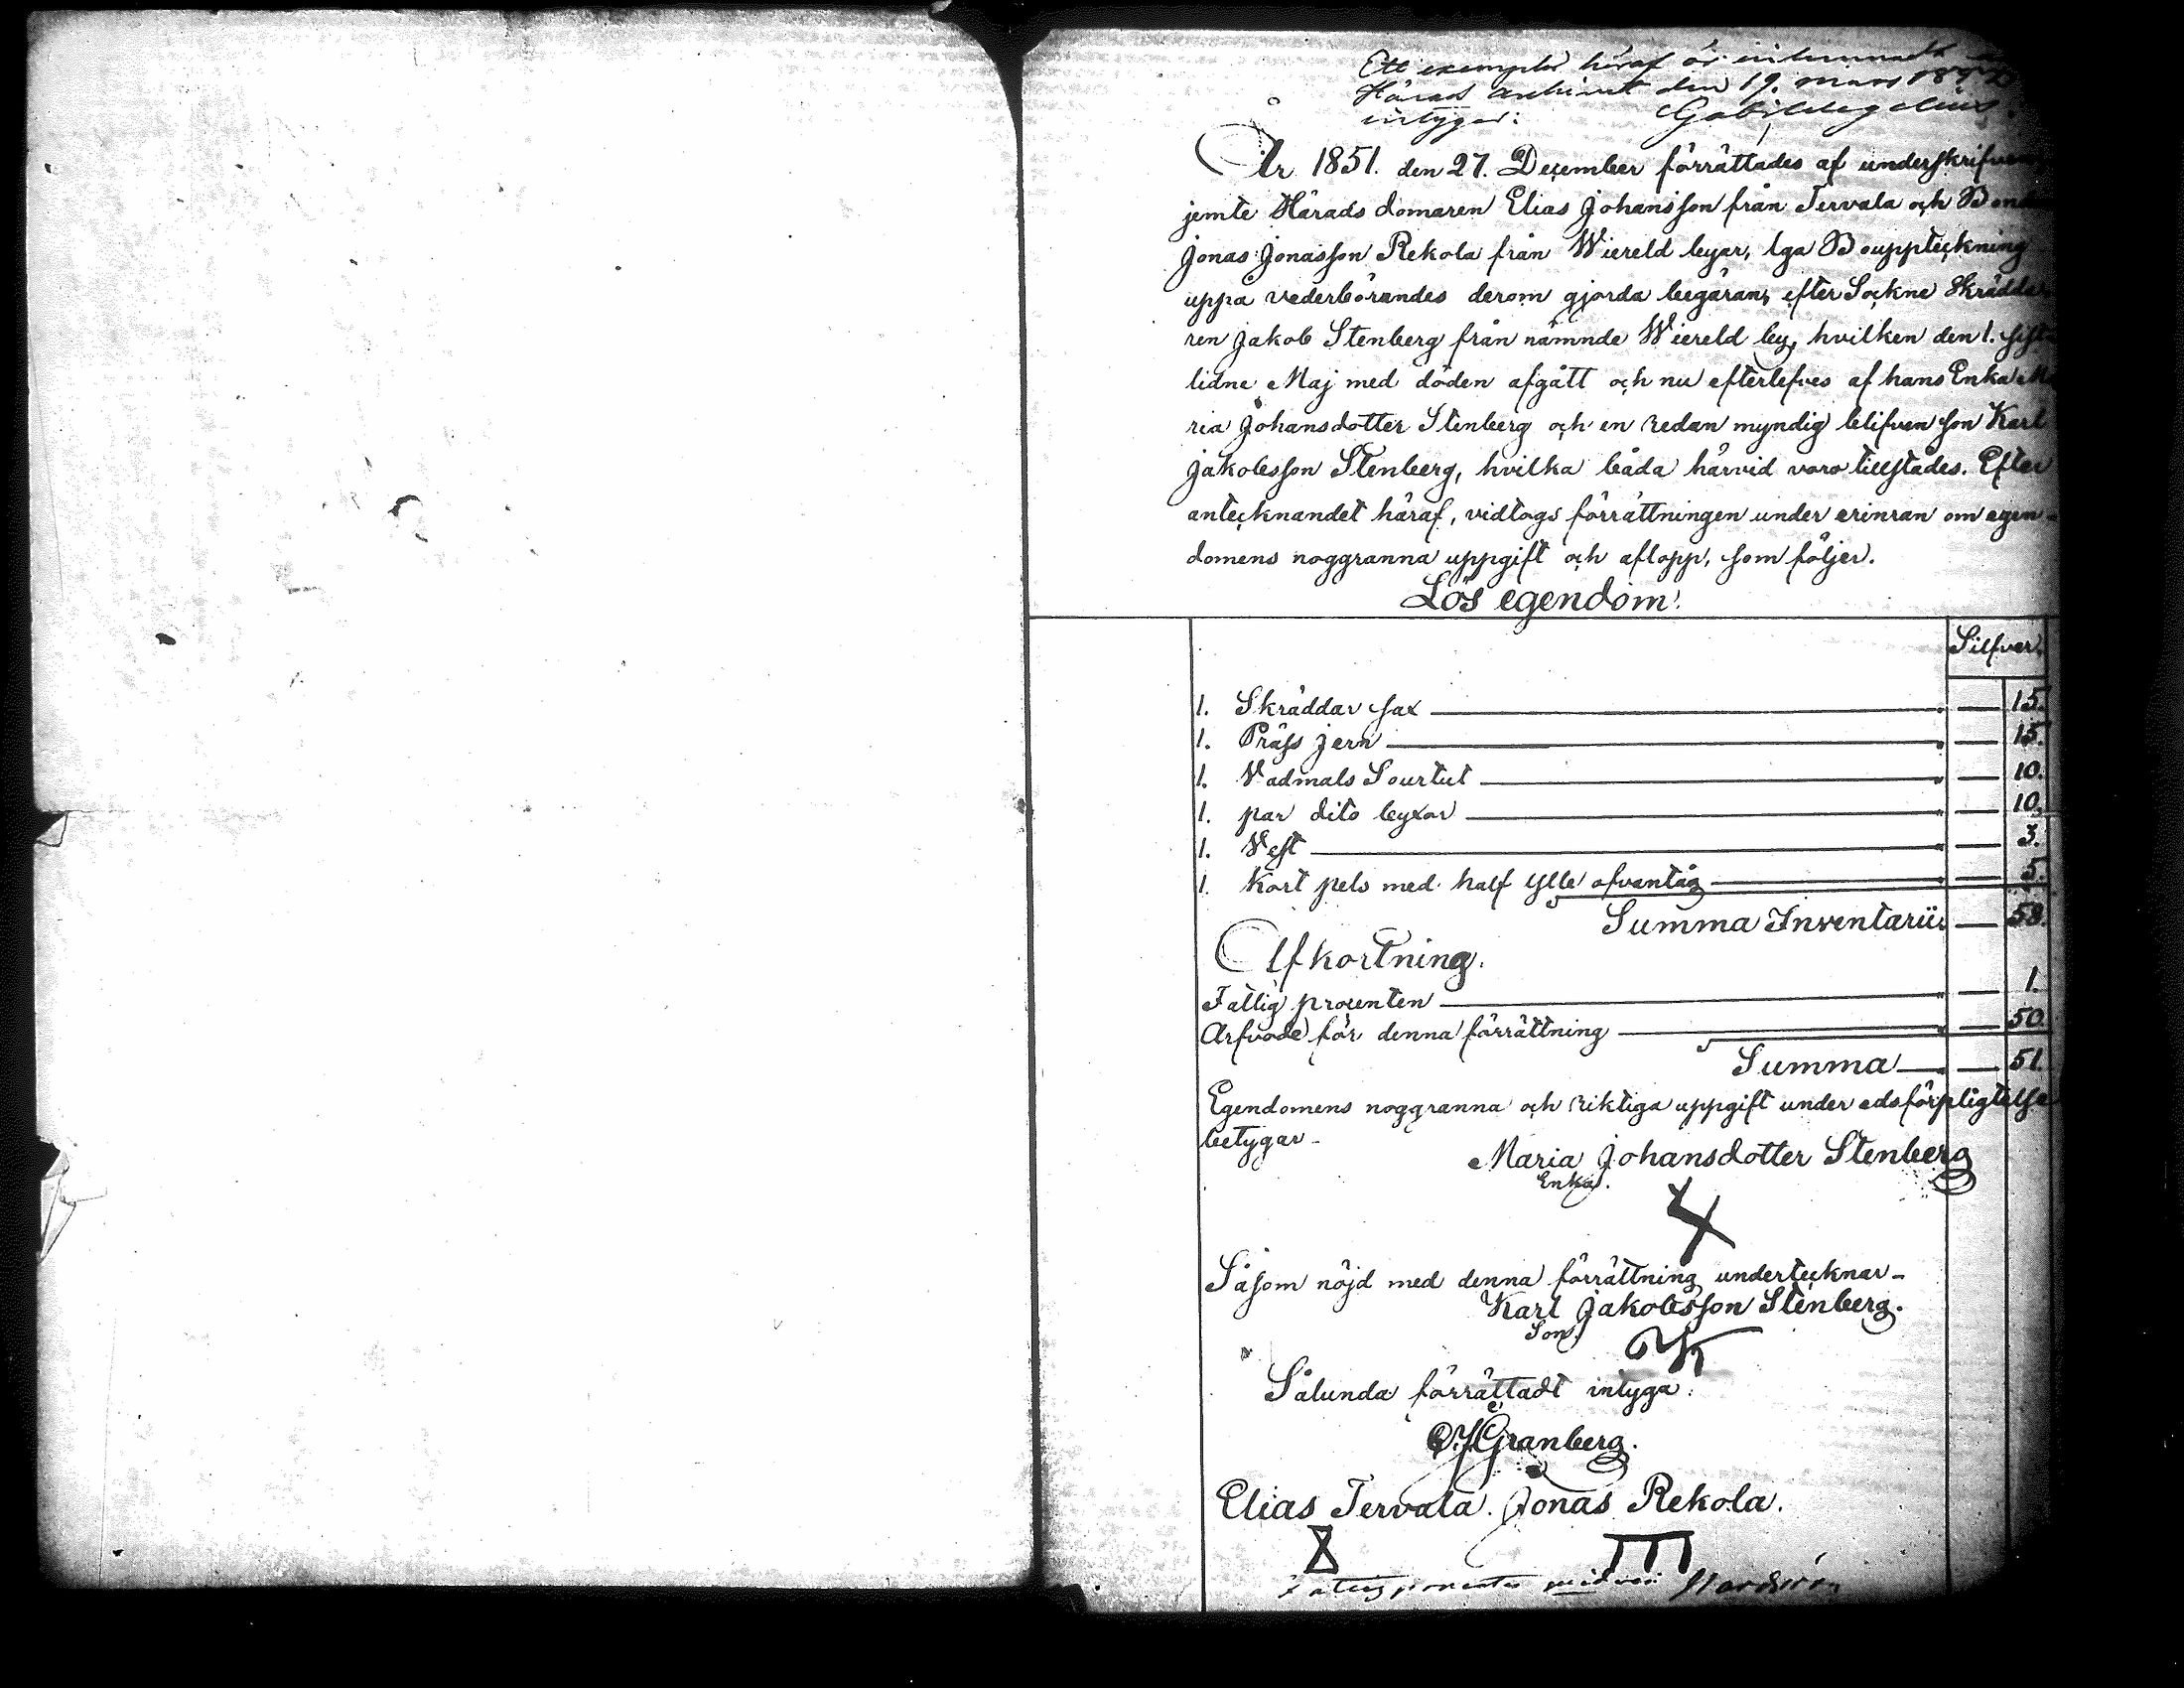 Ett exemplar häraf är inlemnadt
Härads Archivet den 19. mars
intygar:
År 1851. den 27. December förrättades af underskrifven
jemte Härads domaren Elias Johansson från Tervala och Bonden
Jonas Jonasson Rekola från Wiereld byar, lga Bouppteckning
uppå vederbörandes derom gjorda begäran, efter Sockne Skrädda-
ren Jakob Stenberg från nämnde Wiereld by, hvilken den 1. sist-
lidne Maj med döden afgått och nu efterlefves af hans Enka Ma-
ria Johansdotter Stenberg och en redan myndig blifven son Karl
Jakobsson Stenberg, hvilka båda härvid voro tillstädes. Efter
antecknandet häraf, vidtogs förrättningen under erinran om egen-
domens noggranna uppgift och aflopp, som följer.
Lös egendom.
Silfver.
1. Skräddar sax — 15.
1. Präss jern — 15.
1. Vadmals Sourtut — 10.
1. par dito byxor — 10.
1. Vest — 3.
1. Kort pels med half ylle ofvantåg — 5.
Summa Inventarii. — 58.
Afkortning.
Fattig procenten — 1.
Arfvode för denna förrättning — 50.
Summa — 51.
Egendomens noggranna och riktiga uppgift under edsförpligtelse
betygar-
Maria Johansdotter Stenberg
Enka.
Såsom nöjd med denna förrättning undertecknar-
Karl Jakobsson Stenberg.
Son.
Sålunda förrättadt intyga:
Granberg.
Elias Tervala. Jonas Rekola.